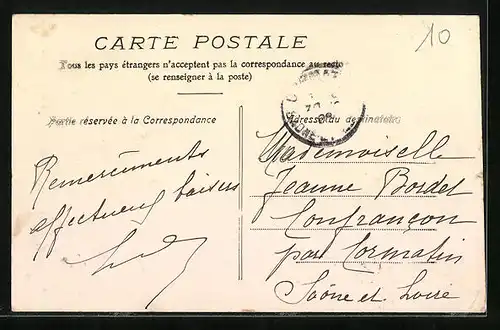 10
CARTE POSTALE
Tous les pays étrangers n'acceptent pas la correspondance au recto
(se renseigner à la poste)
Partie réservée à la Correspondance
Remerciements
affectueux baisers
Adresse du destinataire
Mademoiselle
Jeanne Bordet
Confrançon
par Cormatin
Saône et Loire